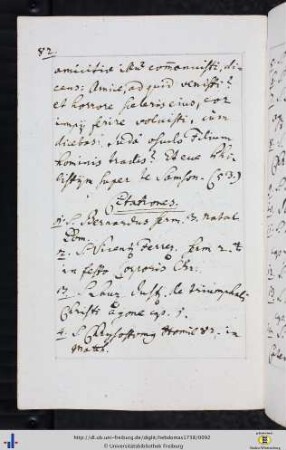 82.
amicitia illud commonuisti, di-
cens: Amice, ad quid venisti?
et horrore sceleris eius, cor
impij ferire voluisti, cum
dicebas: Juda osculo Filium
hominis tradis? Et ecce Phi-
listijm super te Samson. (53.)
Citationes.
1. S. Bernardus serm. 3. natal.
Dom.
2. S. Vicent. Ferrer. serm 2.
in festo Corporis Chr.
3. S. Laur. Just. de triumphali
Christi agone cap. 5.
4. S. Chrysostomus Homil. 83. in
Matth.
http://dl.ub.uni-freiburg.de/diglit/hebdomas1738/0092
© Universitätsbibliothek Freiburg